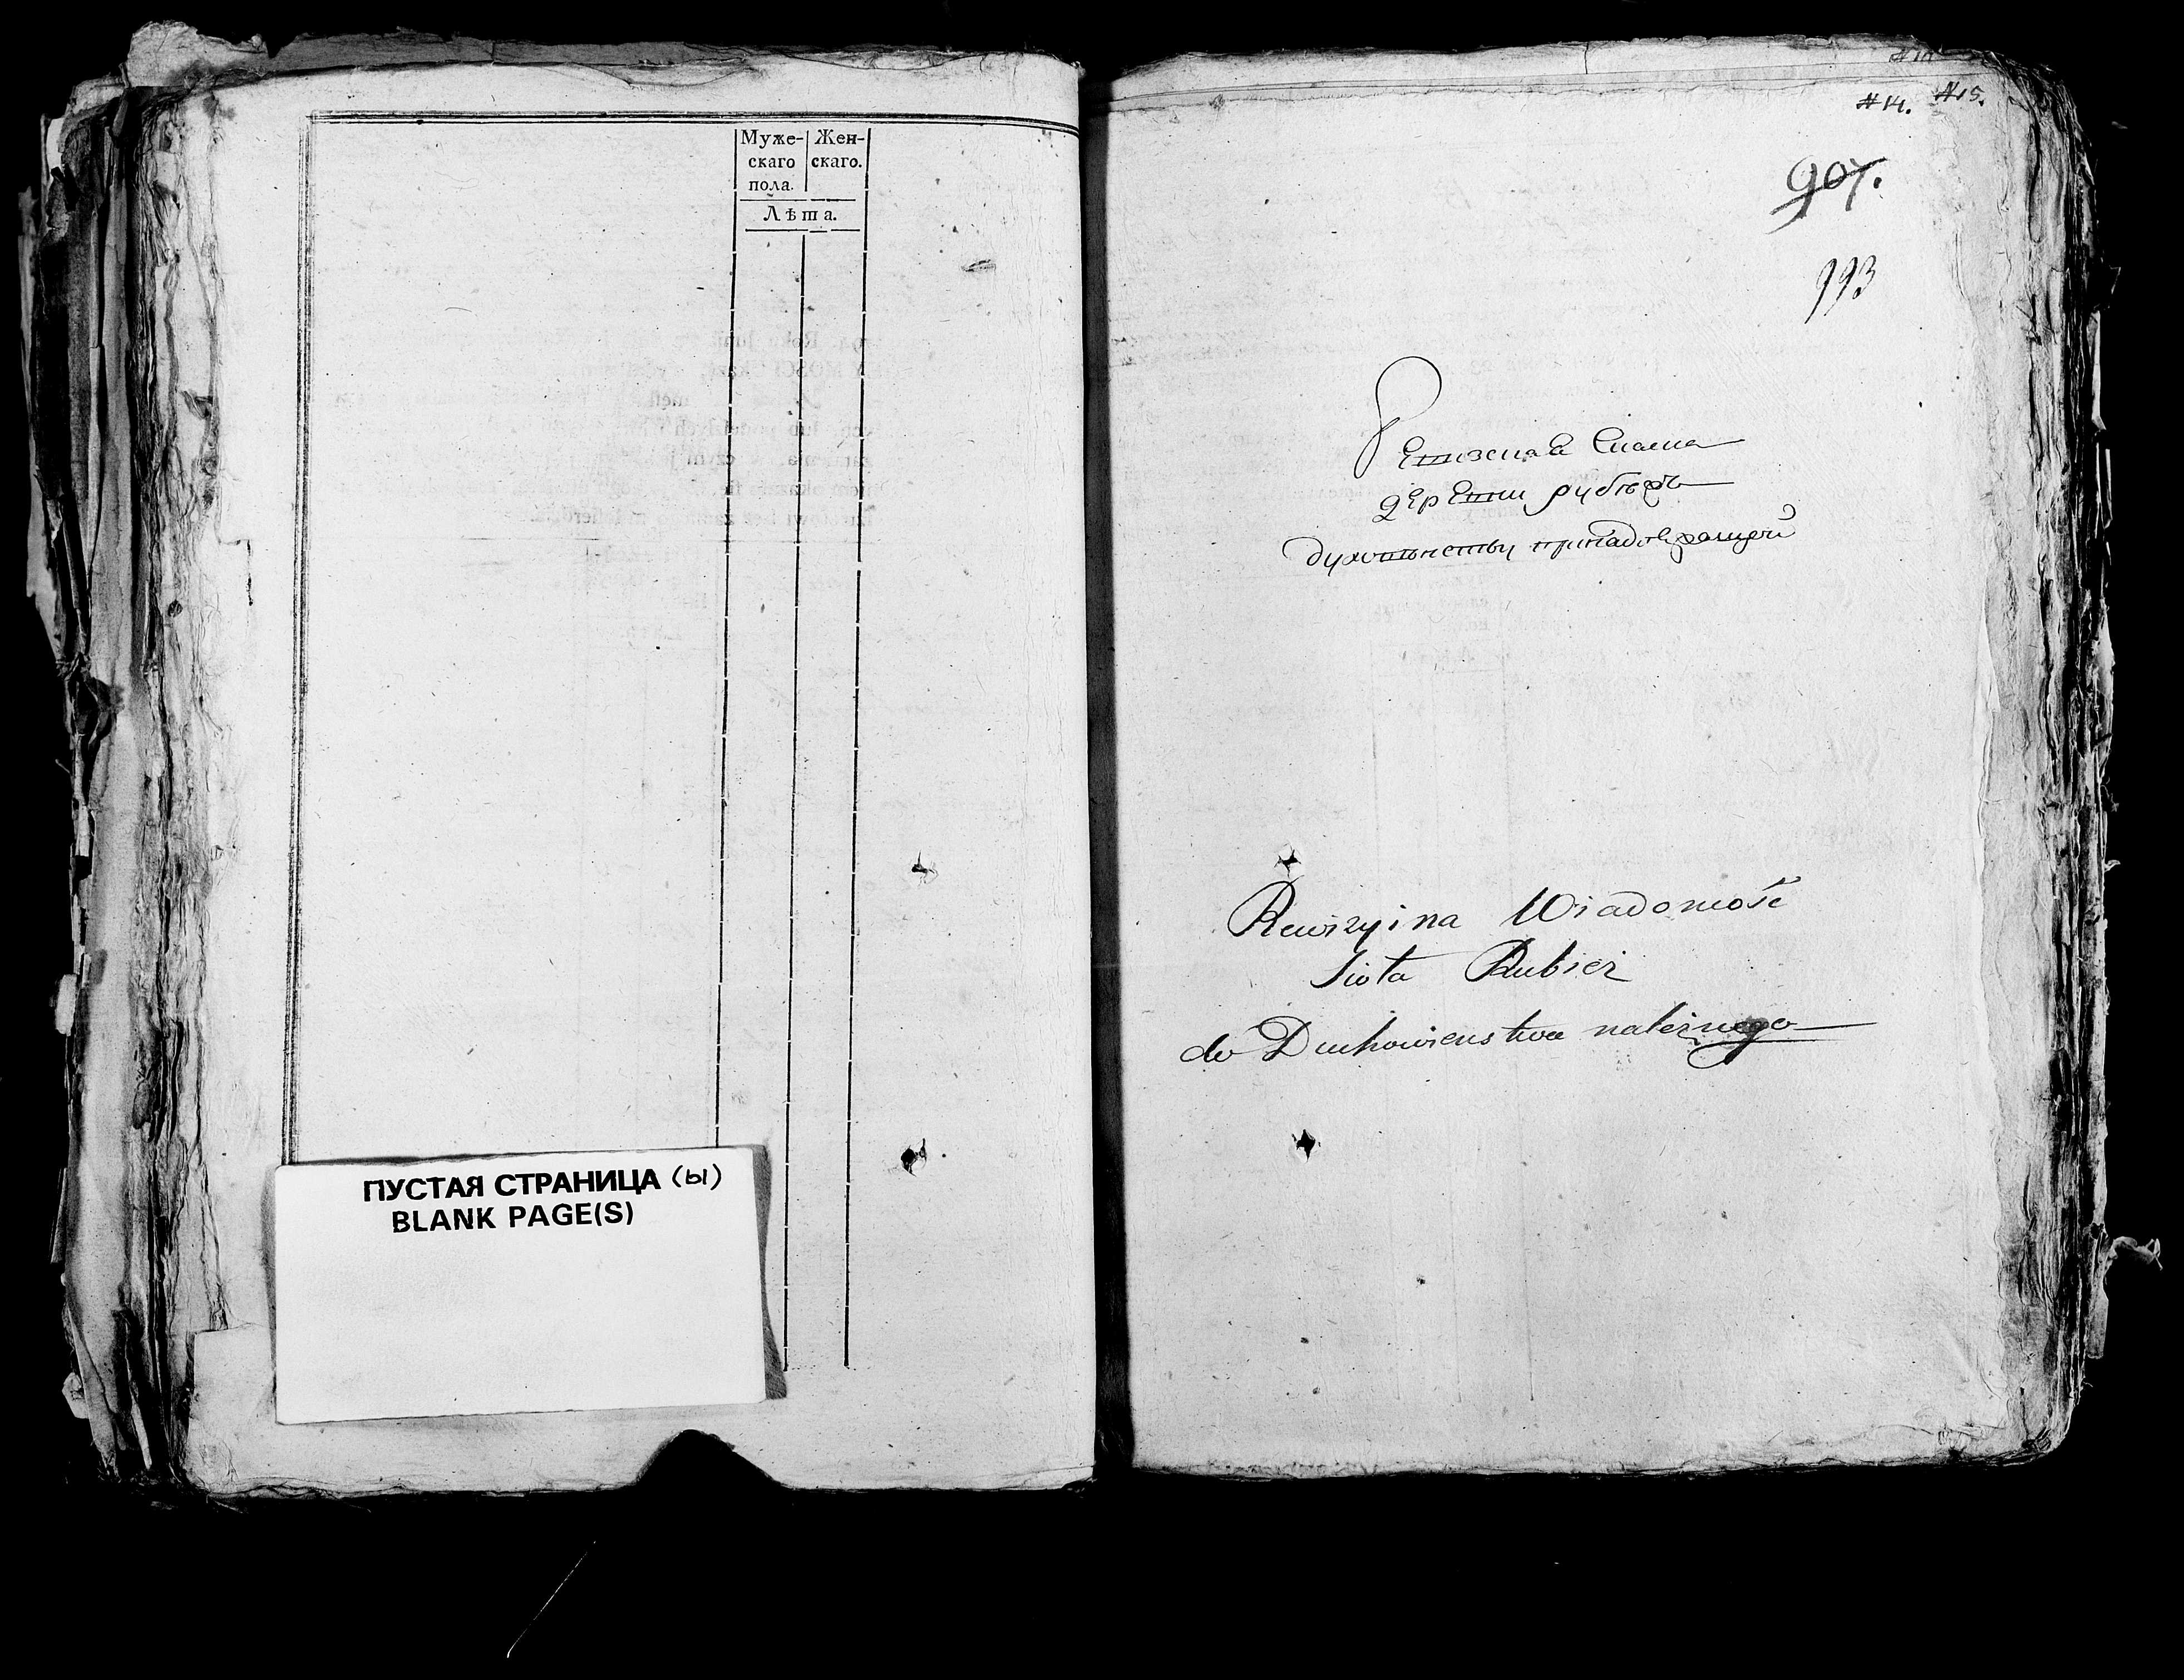 Муже- Жен-
скаго скаго.
пола.
Лѣта.
ПУСТАЯ СТРАНИЦА (ы)
BLANK PAGE(S)
#14. #15.
907.
993
Ревизска
деревни рубежъ
духовенству принадлежащей
Rewizyina Wiadomość
Sioła Rubież
do Duchowienstwa należnego